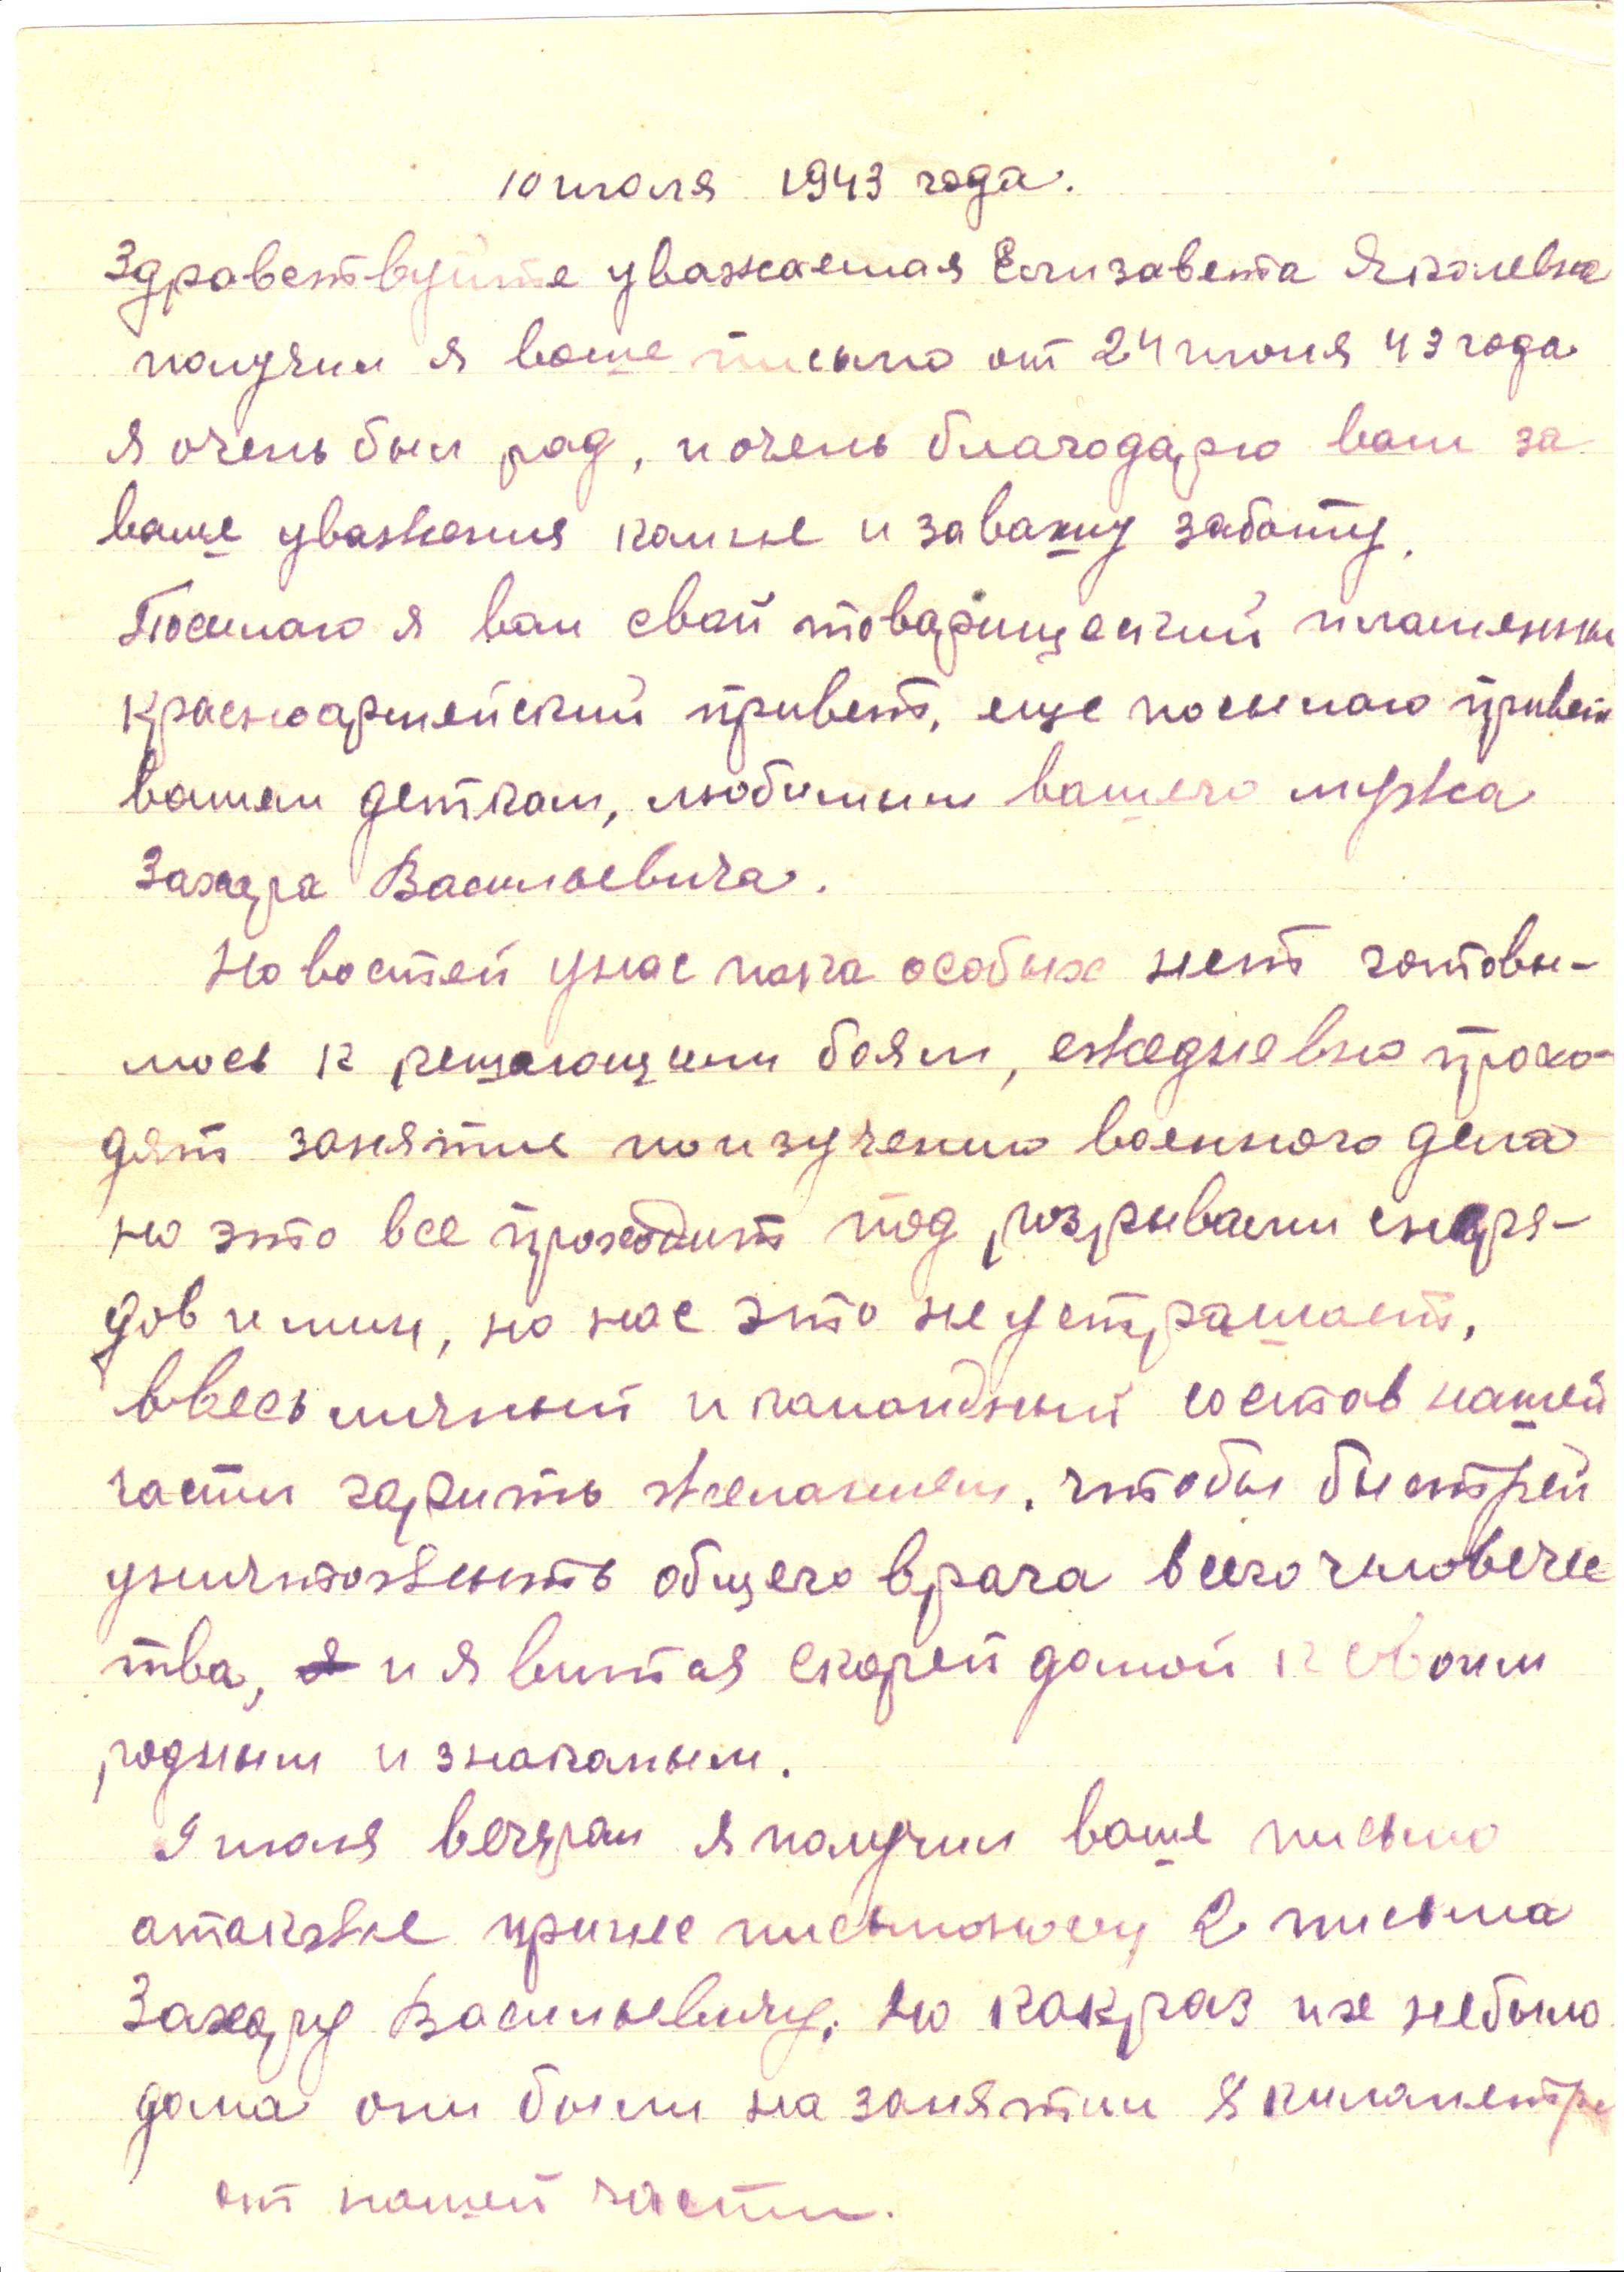 10 июля 1943 года.
Здравствуйте уважаемая Елизавета Яковлевна
получил я ваше письмо от 24 июня 43 года
я очень был рад, и очень благодарю вам за
ваше уважения комне и завашу заботу.
Посылаю я вам свой товарищеский пламенны
красноармейский привет, еще посылаю привет
вашем деткам, любимым вашего мужа
Захара Васильевича.
Новостей унас пока особых нет готовы-
мось к решающим боям, ежедневно прохо-
дят занятие поизучению военного дела
но это все проходит под розрывами снаря-
дов и мин, но нас это не устрашает,
ввесь личный и командный состав нашей
части гарить желанием, чтобы быстрей
уничтожить общего врага всего человечес
тва, и явитая скорей домой к своим
родным и знакомым.
9 июля вечером я получил ваше письмо
атакже принес письмоносец 2 письма
Захару Васильевичу, но какраз их небыло
дома они были на занятии 8 километре
от нашей части.